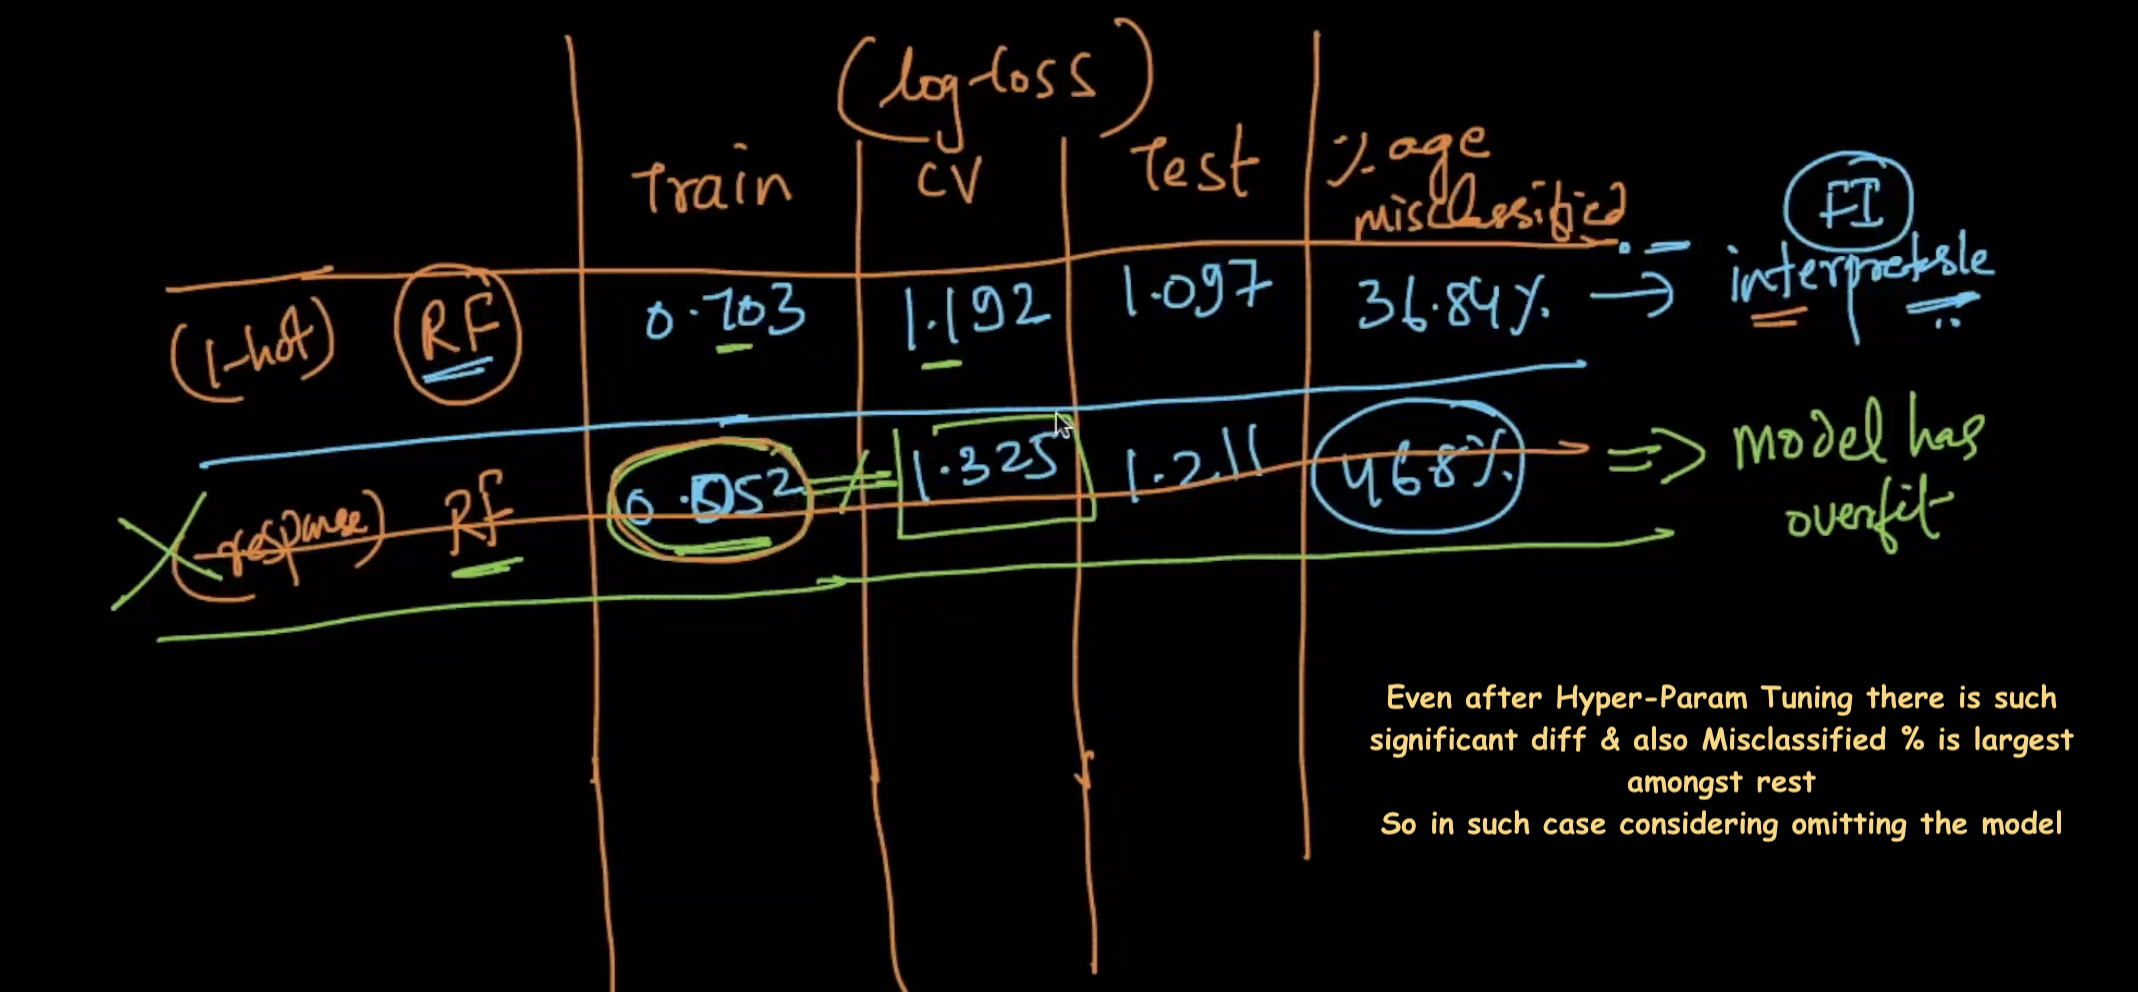 (log-loss)
Train CV Test %age misclassified
FI
(1-hot) RF 0.703 1.192 1.097 36.84% → interpretable
(response) RF 0.052 ≠ 1.325 1.211 46.8% ⇒ Model has overfit
Even after Hyper-Param Tuning there is such
significant diff & also Misclassified % is largest
amongst rest
So in such case considering omitting the model